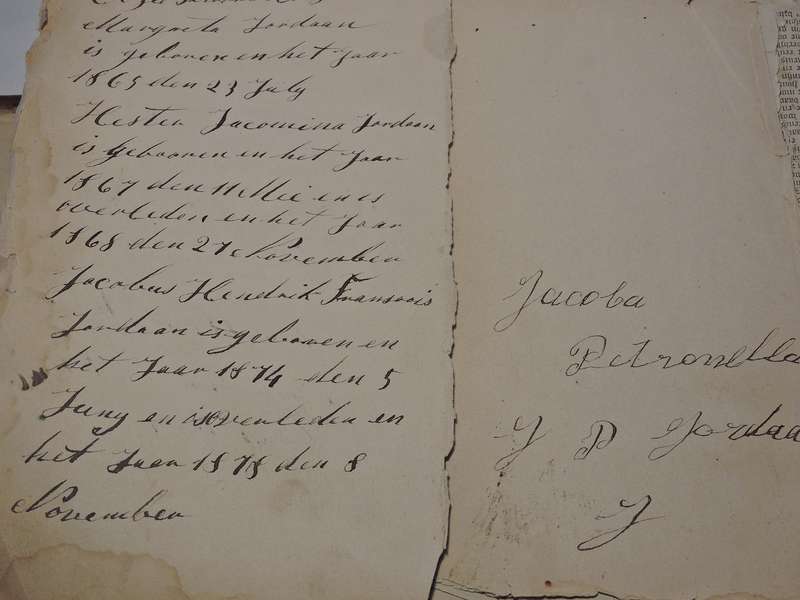 Margreta Jordaan
is geboren en het Jaar
1865 den 23 July
Hester Jacomina Jordaan
is gebooren en het Jaar
1867 den 11 Mei en is
overleden en het Jaar
1868 den 27 November
Jacobus Hendrik Fransoois
Jordaan is geboren en
het Jaar 1874 den 5
Juny en is overleden en
het Jaar 1878 den 8
November
Jacoba
Petronella
J P Jordaa
J